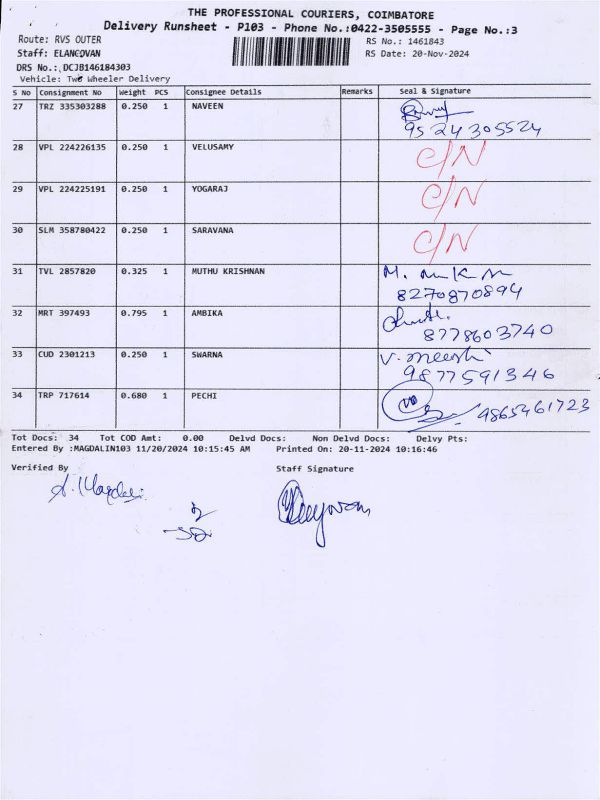 THE PROFESSIONAL COURIERS, COIMBATORE
Delivery Runsheet - P103 - Phone No.:0422-3505555 - Page No.:3
Route: RVS OUTER RS No.: 1461843
Staff: ELANGOVAN RS Date: 20-Nov-2024
DRS No.:.DCJB146184303
Vehicle: Two Wheeler Delivery
S No Consignment No Weight PCS Consignee Details Remarks Seal & Signature
27 TRZ 335303288 0.250 1 NAVEEN
9524305524
28 VPL 224226135 0.250 1 VELUSAMY C/N
29 VPL 224225191 0.250 1 YOGARAJ C/N
30 SLM 358780422 0.250 1 SARAVANA C/N
31 TVL 2857820 0.325 1 MUTHU KRISHNAN
8270870894
32 MRT 397493 0.795 1 AMBIKA
8778603740
33 CUD 2301213 0.250 1 SWARNA
9877591346
34 TRP 717614 0.680 1 PECHI 9865461723
Tot Docs: 34 Tot COD Amt: 0.00 Delvd Docs: Non Delvd Docs: Delvy Pts:
Entered By :MAGDALIN103 11/20/2024 10:15:45 AM Printed On: 20-11-2024 10:16:46
Verified By Staff Signature